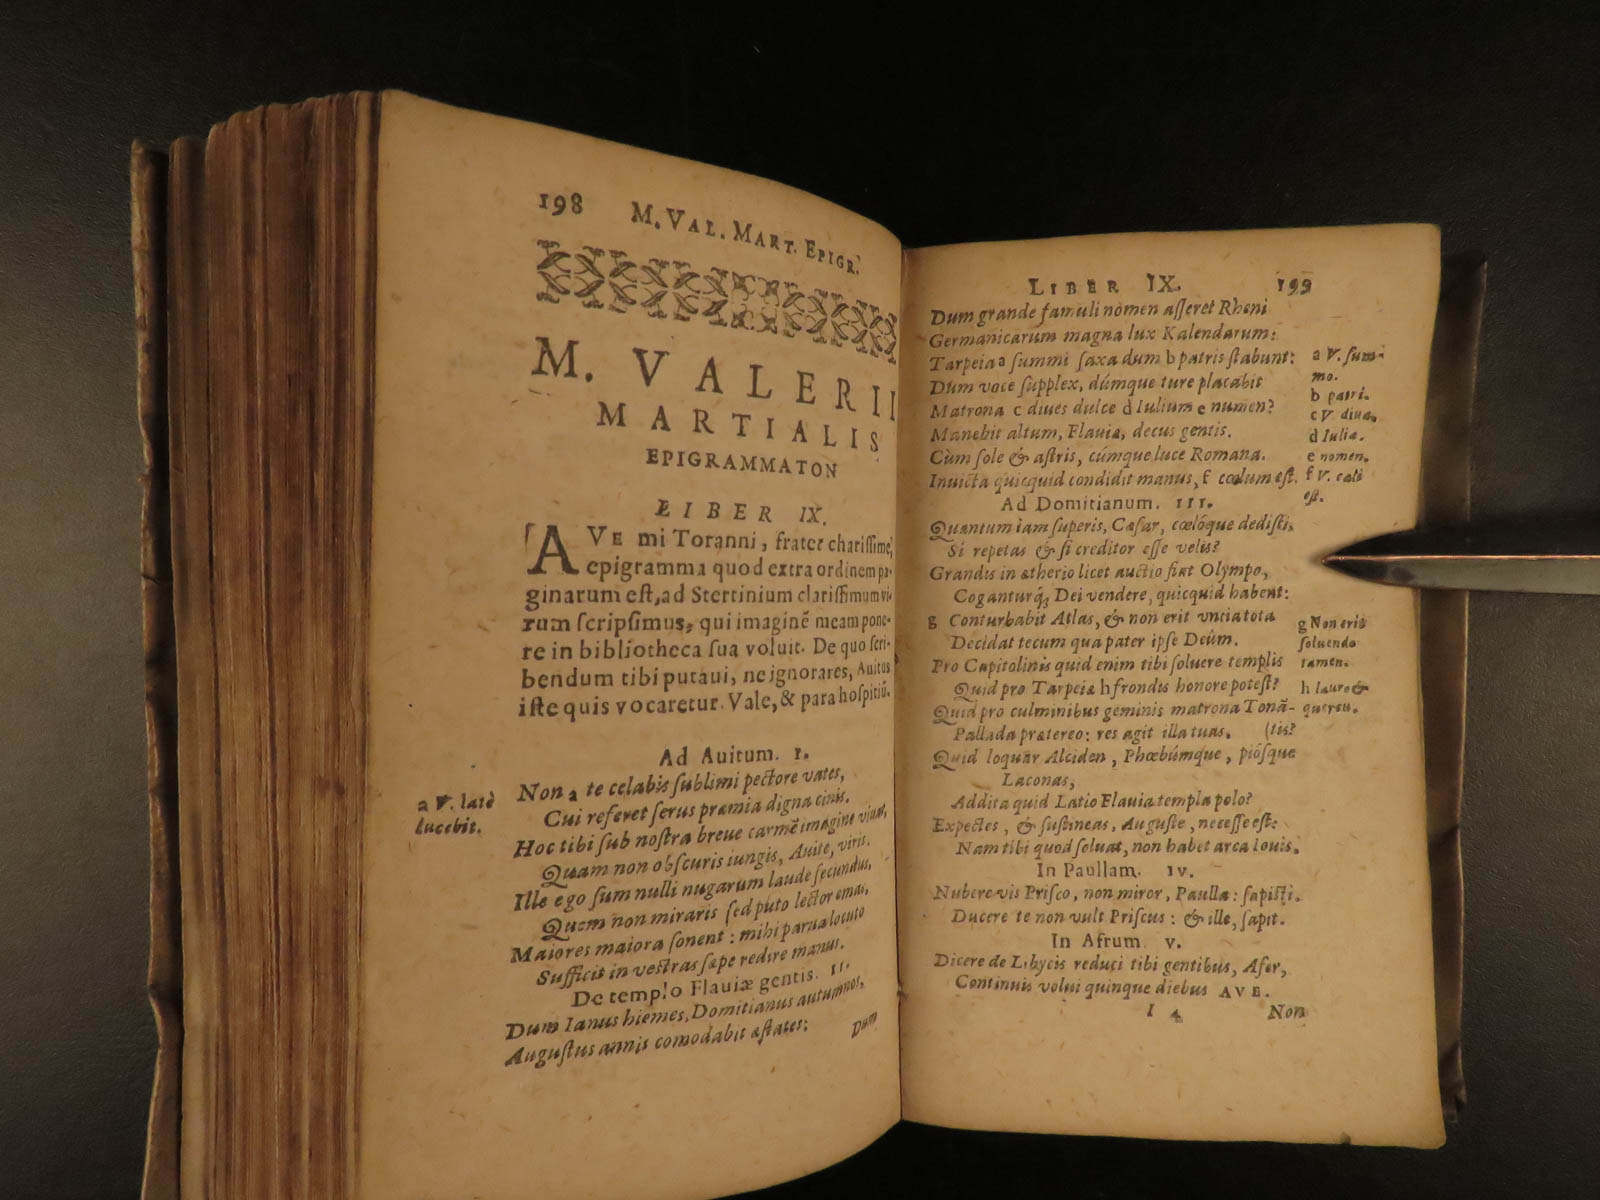 198 M. VAL. MART. EPIGR.
M. VALERII
MARTIALIS
EPIGRAMMATON
LIBER IX.
AVE mi Toranni, frater chariſſime,
epigramma quod extra ordinem pa-
ginarum eſt, ad Stertinium clariſſimum vi-
rum ſcripſimus, qui imaginē meam pone-
re in bibliotheca ſua voluit. De quo ſcri-
bendum tibi putaui, ne ignorares, Auitus
iſte quis vocaretur. Vale, & para hoſpitiū.
Ad Auitum. I.
Non a te celabis ſublimi pectore vates,
Cui referet ſerus præmia digna cinis.
Hoc tibi ſub noſtra breue carmē imagine viuat,
Quam non obſcuris iungis, Auite, viris.
Ille ego ſum nulli nugarum laude ſecundus,
Quem non miraris ſed puto lector emas,
Maiores maiora ſonent: mihi parua locuto
Sufficit in veſtras ſæpe redire manus.
De templo Flauiæ gentis. II.
Dum Ianus hiemes, Domitianus autumnos,
Auguſtus annis comodabit æſtates:
Dum
a V. latè
lucebit.
LIBER IX. 199
Dum grande famuli nomen aſſeret Rheni
Germanicarum magna lux Kalendarum:
Tarpeia a ſummi ſaxa dum b patris ſtabunt:
Dum voce ſupplex, dúmque ture placabit
Matrona c diues dulce d Iulium e numen?
Manebit altum, Flauia, decus gentis.
Cùm ſole & aſtris, cúmque luce Romana.
Inuicta quicquid condidit manus, f cœlum eſt.
Ad Domitianum. III.
Quantum iam ſuperis, Cæſar, cœlóque dediſti,
Si repetas & ſi creditor eſſe velis?
Grandis in ætherio licet auctio fiat Olympo,
Coganturq́; Dei vendere, quicquid habent:
g Conturbabit Atlas, & non erit vncia tota
Decidat tecum qua pater ipſe Deûm.
Pro Capitolinis quid enim tibi ſoluere templis
Quid pro Tarpeiæ h frondis honore poteſt?
Quid pro culminibus geminis matrona Tonā-
Pallada prætereo: res agit illa tuas. (tis?
Quid loquar Alciden, Phœbúmque, pióſque
Laconas,
Addita quid Latio Flauia templa polo?
Expectes, & ſuſtineas, Auguſte, neceſſe eſt:
Nam tibi quod ſoluat, non habet arca Iouis.
In Paullam. IV.
Nubere vis Priſco, non miror, Paulla: ſapiſti.
Ducere te non vult Priſcus: & ille, ſapit.
In Afrum. V.
Dicere de Libycis reduci tibi gentibus, Afer,
Continuis volui quinque diebus AVE.
I 4 Non
a V. ſum-
mo.
b patri.
c V. diua.
d Iulia.
e nomen.
f V. cæli
eſt.
g Non erit
ſoluendo
tamen.
h lauro &
quercu.